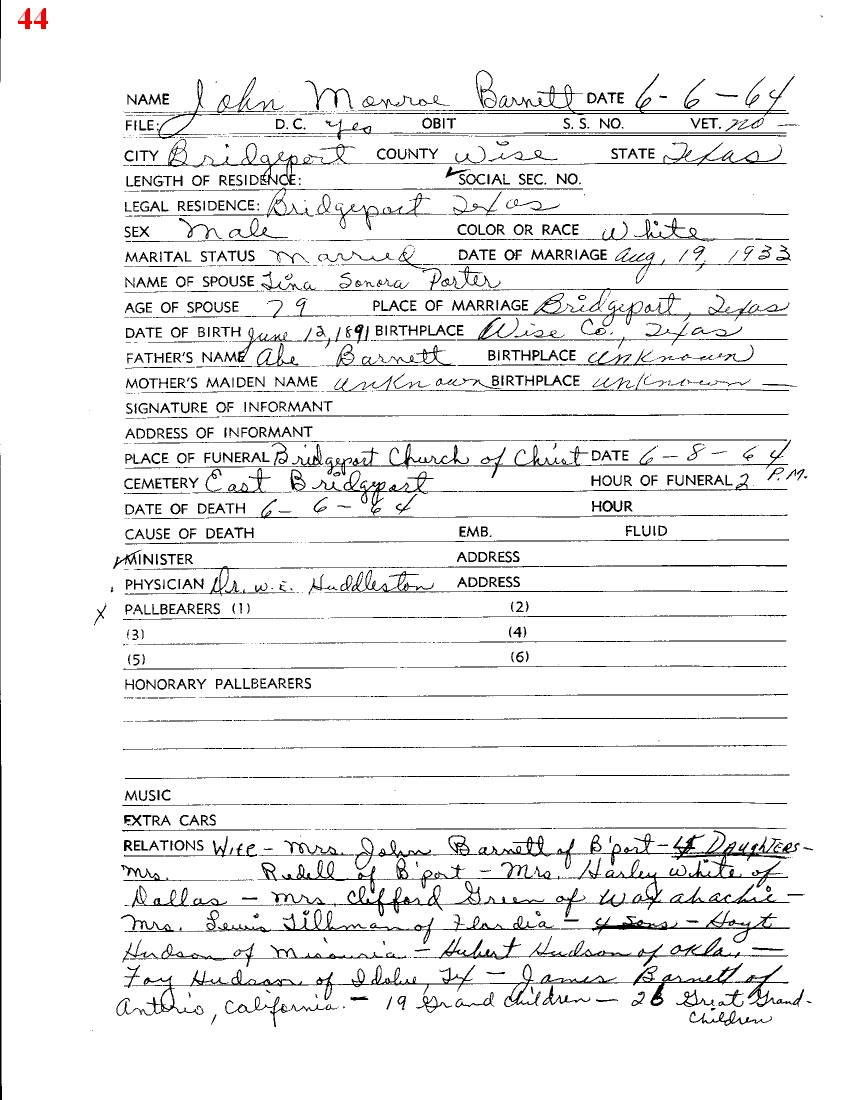 44
NAME John Monroe Barnett DATE 6-6-64
FILE: D. C. yes OBIT S. S. NO. VET. no —
CITY Bridgeport COUNTY Wise STATE Texas
LENGTH OF RESIDENCE: SOCIAL SEC. NO.
LEGAL RESIDENCE: Bridgeport Texas
SEX Male COLOR OR RACE White
MARITAL STATUS Married DATE OF MARRIAGE Aug, 19, 1933
NAME OF SPOUSE Lina Sonora Porter
AGE OF SPOUSE 79 PLACE OF MARRIAGE Bridgeport, Texas
DATE OF BIRTH June 12, 1891 BIRTHPLACE Wise Co., Texas
FATHER'S NAME Abe Barnett BIRTHPLACE unknown
MOTHER'S MAIDEN NAME unknown BIRTHPLACE unknown —
SIGNATURE OF INFORMANT
ADDRESS OF INFORMANT
PLACE OF FUNERAL Bridgeport Church of Christ DATE 6-8-64
CEMETERY East Bridgeport HOUR OF FUNERAL 2 P.M.
DATE OF DEATH 6-6-64 HOUR
CAUSE OF DEATH EMB. FLUID
MINISTER ADDRESS
PHYSICIAN Dr. W. E. Huddleston ADDRESS
X PALLBEARERS (1) (2)
(3) (4)
(5) (6)
HONORARY PALLBEARERS
MUSIC
EXTRA CARS
RELATIONS Wife - Mrs. John Barnett of B'port - 4 Daughters -
Mrs. Redell of B'port - Mrs. Harley White of
Dallas - Mrs. Clifford Green of Waxahachie -
Mrs. Lewis Tillman of Flordia - 4 sons - Hoyt
Hudson of Missouria - Hubert Hudson of Okla, —
Foy Hudson of Idolue, Tx - James Barnett of
Antorio, California. - 19 Grand children - 26 Great Grand-
children